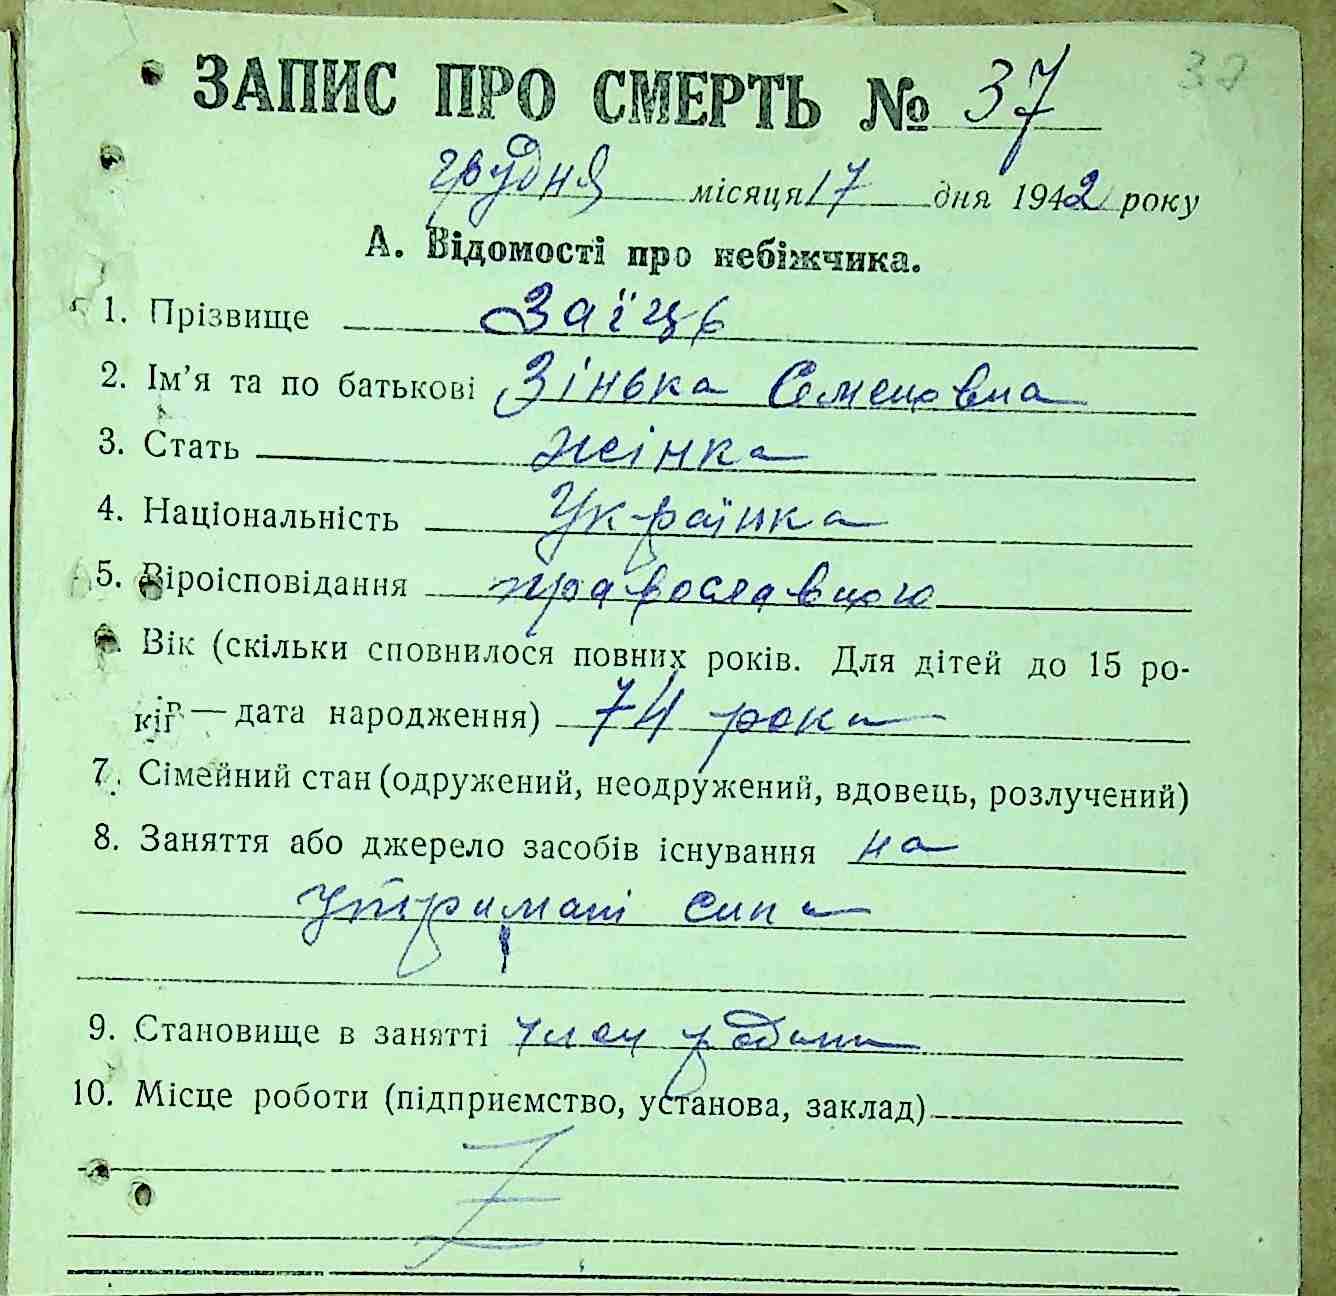 ЗАПИС ПРО СМЕРТЬ № 37 37
грудня місяця 17 дня 1942 року
А. Відомості про небіжчика.
1. Прізвище Заїць
2. Ім’я та по батькові Зінька Семеновна
3. Стать жінка
4. Національність Українка
5. Віроісповідання православного
Вік (скільки сповнилося повних років. Для дітей до 15 ро-
ків — дата народження) 74 роки
7. Сімейний стан (одружений, неодружений, вдовець, розлучений)
8. Заняття або джерело засобів існування на
утримані сина
9. Становище в занятті член родини
10. Місце роботи (підприємство, установа, заклад)